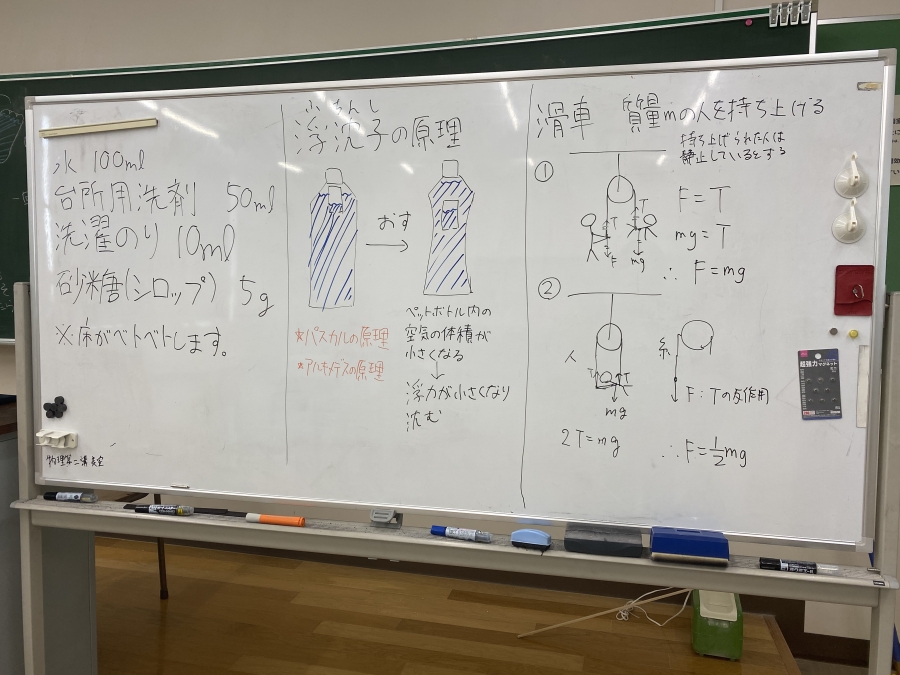 水 100ml
台所用洗剤 50ml
洗濯のり 10ml
砂糖(シロップ) 5g
※床がベトベトします。
物理第二講義室
ふちんし
浮沈子の原理
おす
*パスカルの原理
*アルキメデスの原理
ペットボトル内の
空気の体積が
小さくなる
浮力が小さくなり
沈む
滑車 質量mの人を持ち上げる
持ち上げられた人は
静止しているとする
①
T
T
F
mg
F=T
mg=T
∴ F=mg
②
人
T
T
mg
2T=mg
糸
F:Tの反作用
∴ F=1/2mg
超強力
マグネット